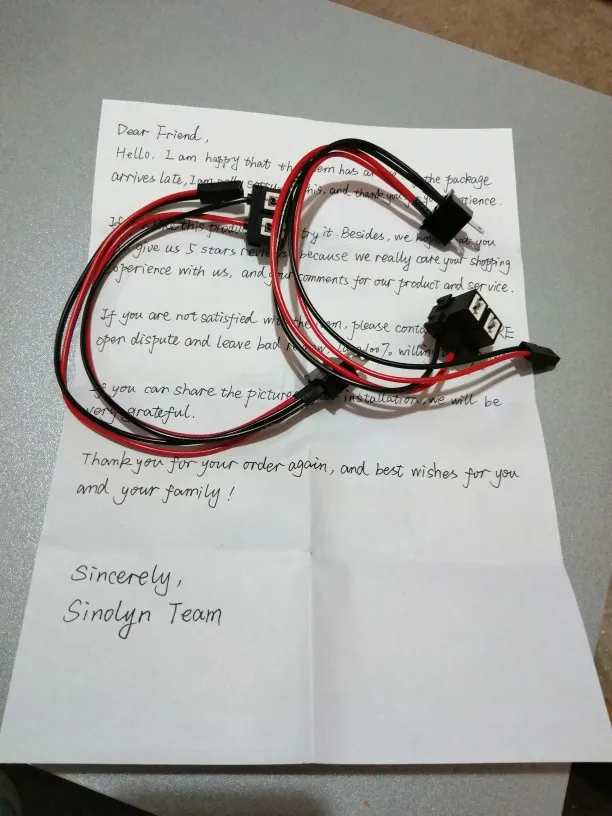 Dear Friend,
Hello. I am happy that the has the package
arrives late, I am this, and thank you
If this try it. Besides, we you
give us 5 stars because we really care your shopping
with us, and comments for our product and service.
If you are not satisfied please
open dispute and leave bad 100%
If you can share the picture installation, we will be
very grateful.
Thank you for your order again, and best wishes for you
and your family!
Sincerely,
Sinolyn Team